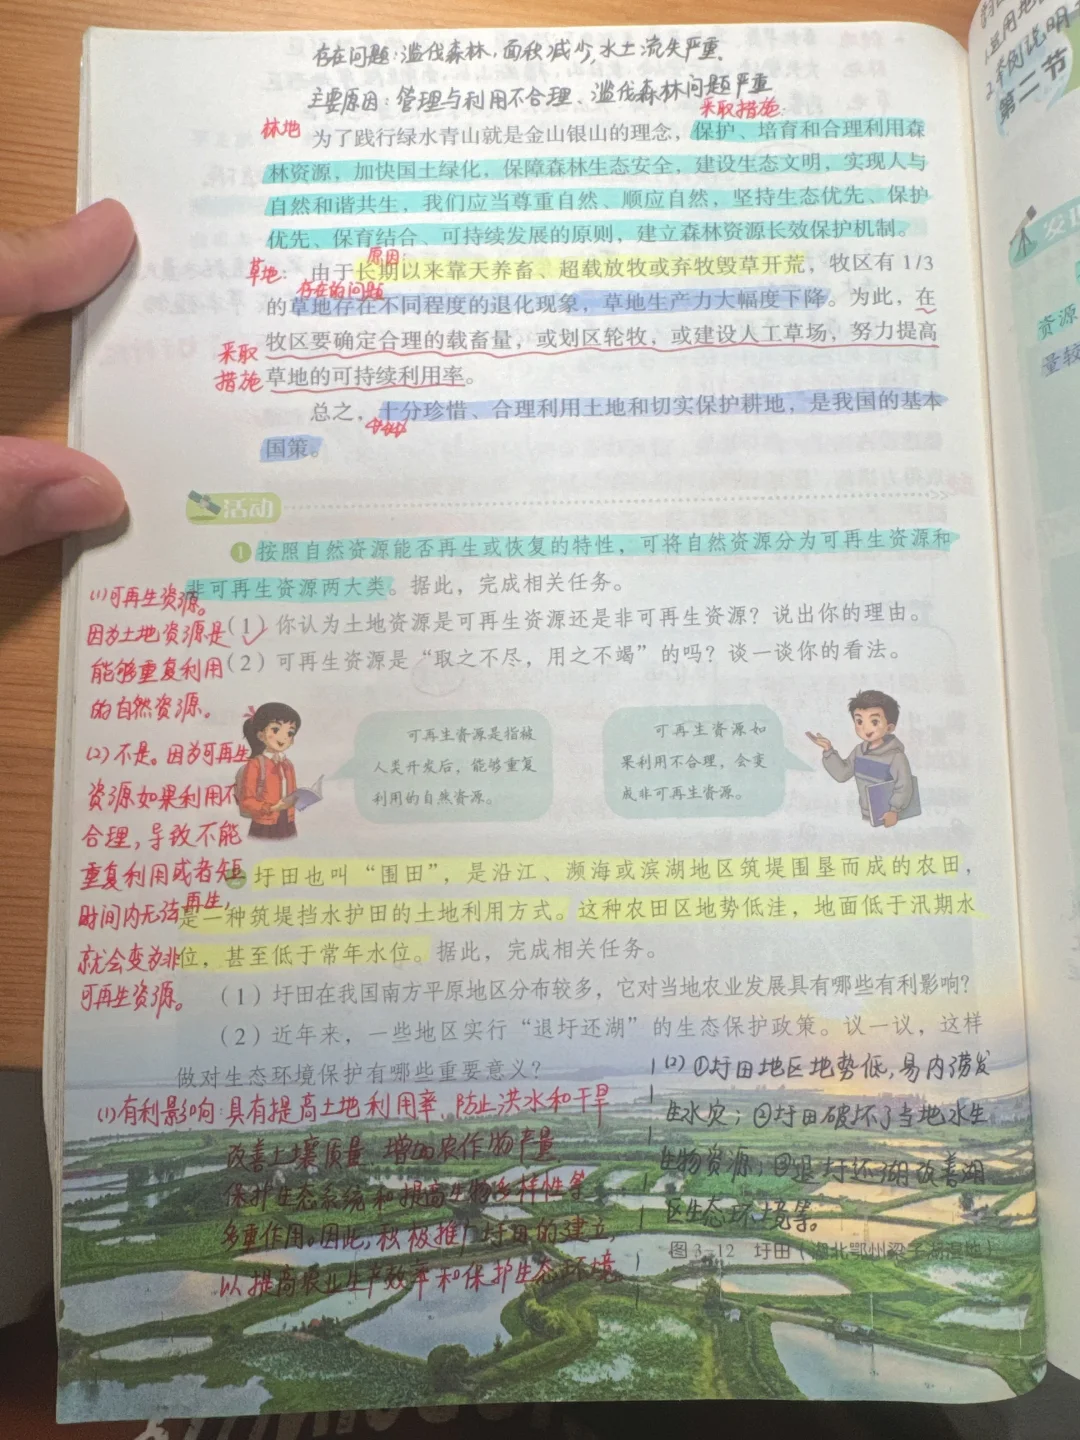 存在问题：滥伐森林，面积减少，水土流失严重．
主要原因：管理与利用不合理、滥伐森林问题严重
采取措施．
林地
为了践行绿水青山就是金山银山的理念，保护、培育和合理利用森
林资源，加快国土绿化，保障森林生态安全，建设生态文明，实现人与
自然和谐共生，我们应当尊重自然、顺应自然，坚持生态优先、保护
优先、保育结合、可持续发展的原则，建立森林资源长效保护机制。
原因：
草地：
由于长期以来靠天养畜、超载放牧或弃牧毁草开荒，牧区有1/3
存在的问题
的草地存在不同程度的退化现象，草地生产力大幅度下降。为此，在
牧区要确定合理的载畜量，或划区轮牧，或建设人工草场，努力提高
采取
措施
草地的可持续利用率。
总之，十分珍惜、合理利用土地和切实保护耕地，是我国的基本
国策。
活动
1 按照自然资源能否再生或恢复的特性，可将自然资源分为可再生资源和
非可再生资源两大类。据此，完成相关任务。
（1）你认为土地资源是可再生资源还是非可再生资源？说出你的理由。
（2）可再生资源是“取之不尽，用之不竭”的吗？谈一谈你的看法。
(1)可再生资源。
因为土地资源是
能够重复利用
的自然资源。
(2)不是。因为可再生
资源如果利用不
合理，导致不能
重复利用或者短
时间内无法再生，
就会变为非
可再生资源。
可再生资源是指被
人类开发后，能够重复
利用的自然资源。
可再生资源如
果利用不合理，会变
成非可再生资源。
圩田也叫“围田”，是沿江、濒海或滨湖地区筑堤围垦而成的农田，
是一种筑堤挡水护田的土地利用方式。这种农田区地势低洼，地面低于汛期水
位，甚至低于常年水位。据此，完成相关任务。
（1）圩田在我国南方平原地区分布较多，它对当地农业发展具有哪些有利影响？
（2）近年来，一些地区实行“退圩还湖”的生态保护政策。议一议，这样
做对生态环境保护有哪些重要意义？
(1)有利影响：具有提高土地利用率、防止洪水和干旱
改善土壤质量、增加农作物产量、
保护生态系统和提高生物多样性等
多重作用。因此，积极推广圩田的建立，
以提高农业生产效率和保护生态环境。
(2)①圩田地区地势低，易内涝发
生水灾；②圩田破坏了当地水生
生物资源；③退圩还湖改善湖
区生态环境等。
图3-12 圩田（湖北鄂州梁子湖湿地）
2.举例说明
第二节
资源
量较